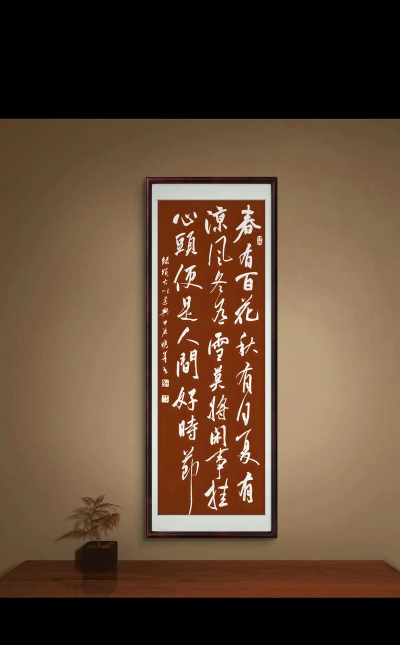 春有百花秋有月夏有
涼風冬有雪莫將閑事挂
心頭便是人間好時節